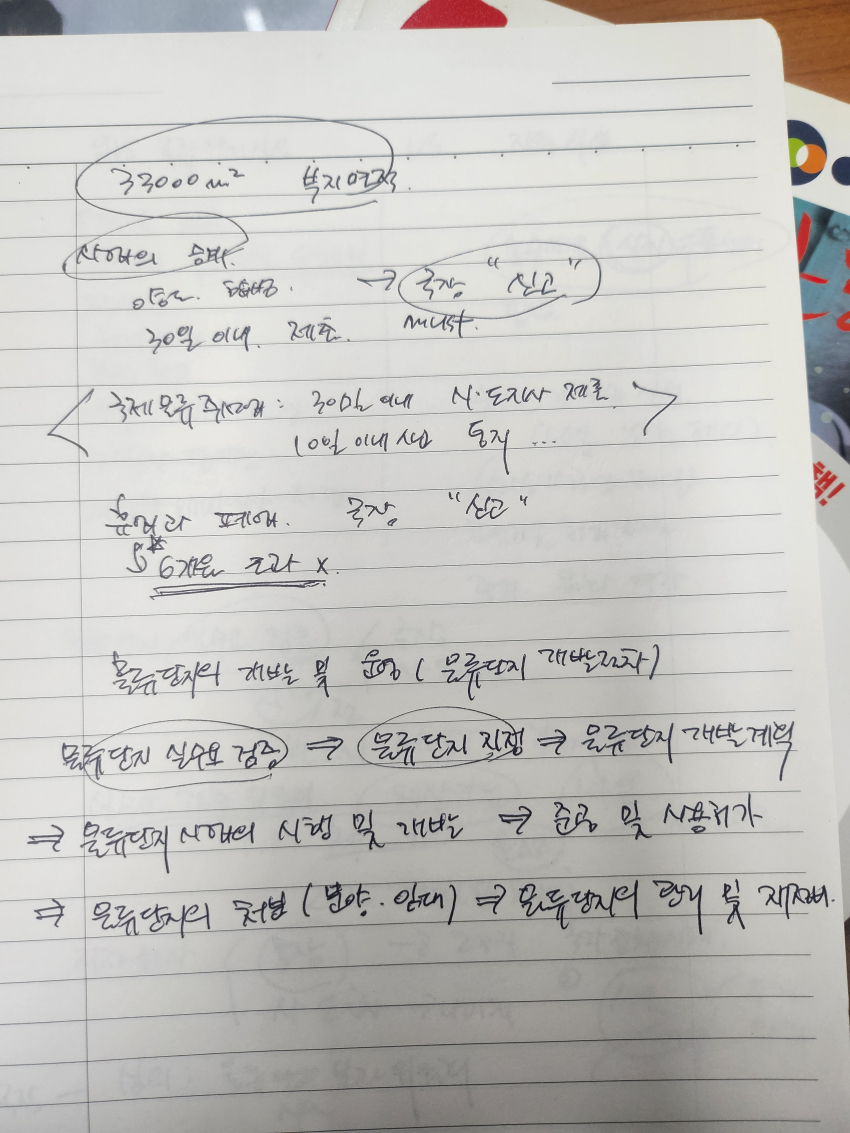 33000m² 부지면적.
사업의 승계.
→ 국장 "신고"
30일 이내. 제출.
국제물류주선업: 30일 이내 시·도지사 제출
10일 이내 통지 ...
휴업과 폐업. 국장 "신고"
6개월 초과 x.
물류단지의 개발 및 운영 (물류단지 개발절차)
물류단지 실수요 검증 ⇒ 물류단지 지정 ⇒ 물류단지 개발계획
⇒ 물류단지 사업의 시행 및 개발 ⇒ 준공 및 사용허가
⇒ 물류단지의 처분 (분양·임대) ⇒ 물류단지의 관리 및 재정비.
책!